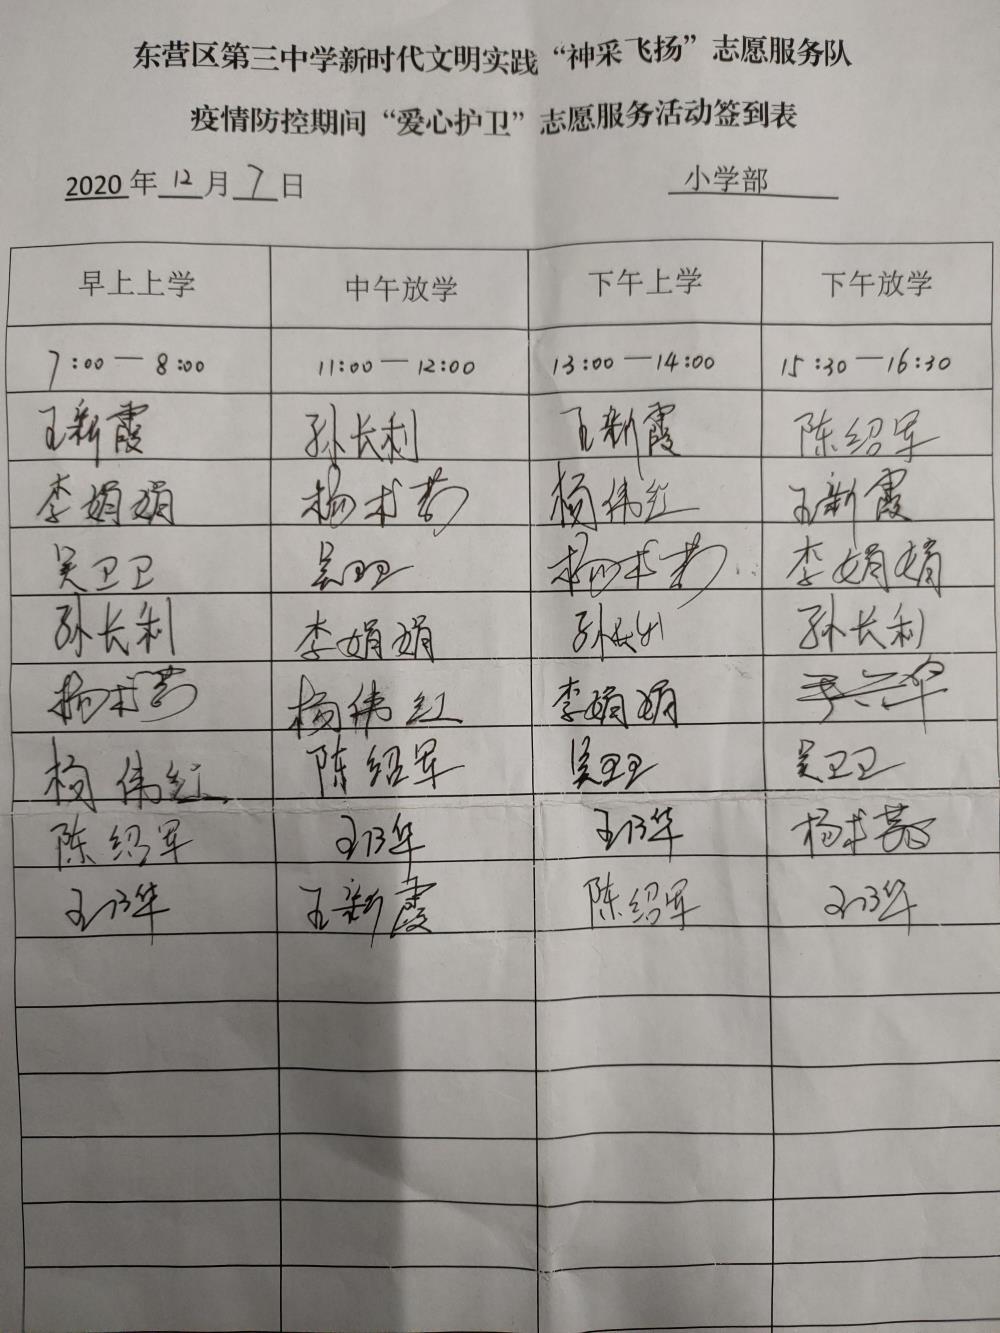 东营区第三中学新时代文明实践“神采飞扬”志愿服务队
疫情防控期间“爱心护卫”志愿服务活动签到表
2020年12月7日 小学部
早上上学 中午放学 下午上学 下午放学
7:00—8:00 11:00—12:00 13:00—14:00 15:30—16:30
王新霞 孙长利 王新霞 陈绍军
李娟娟 杨术芳 杨伟红 王新霞
吴卫卫 吴卫卫 杨术芳 李娟娟
孙长利 李娟娟 孙长利 孙长利
杨术芳 杨伟红 李娟娟
杨伟红 陈绍军 吴卫卫 吴卫卫
陈绍军 王乃华 王乃华 杨术芳
王乃华 王新霞 陈绍军 王乃华